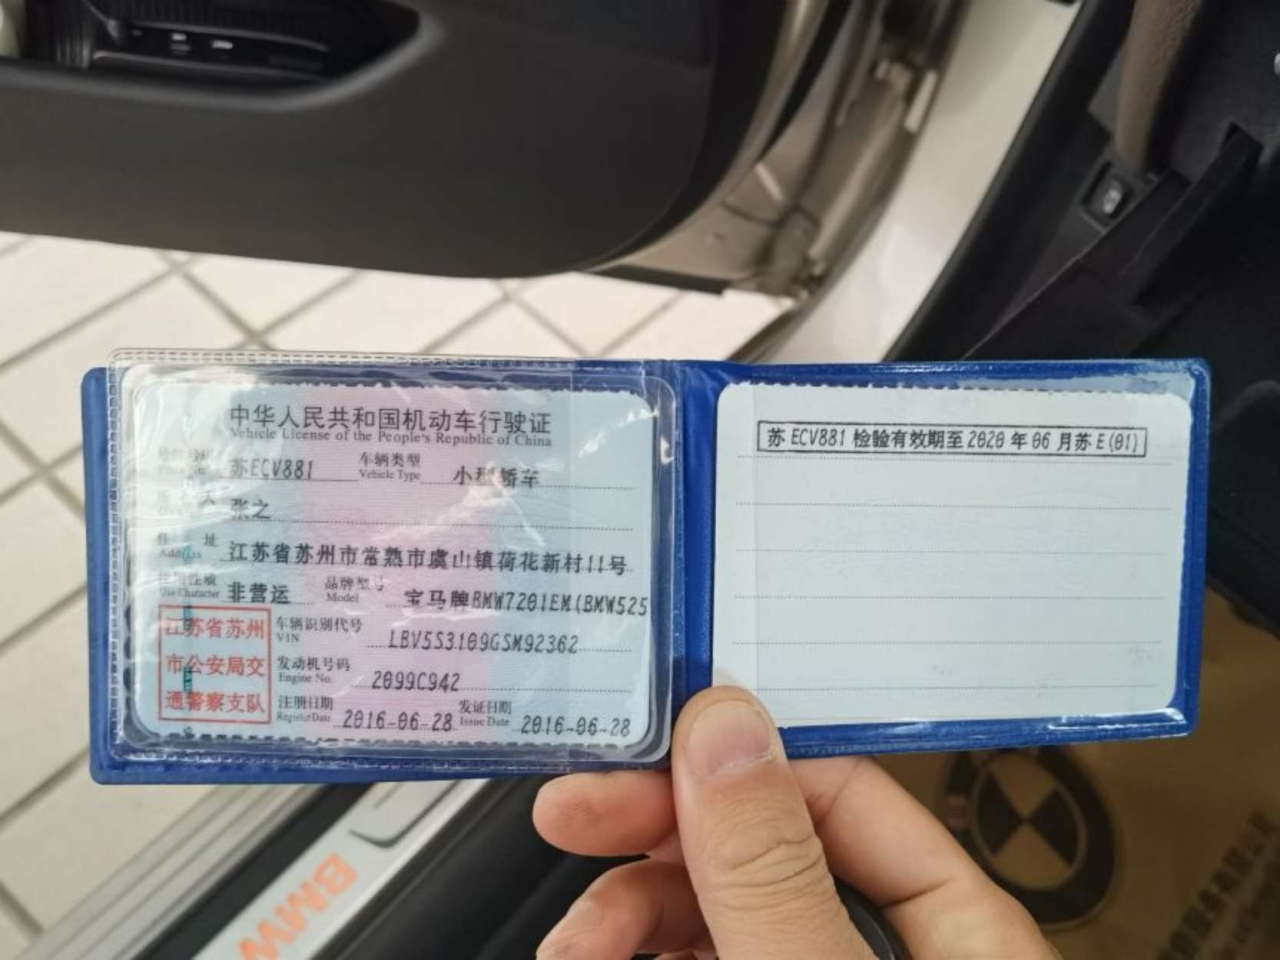 中华人民共和国机动车行驶证
Vehicle License of the People's Republic of China
苏ECV881 车辆类型 Vehicle Type 小型轿车
人 张之
址 Address 江苏省苏州市常熟市虞山镇荷花新村11号
使用性质 Use Character 非营运 品牌型号 Model 宝马牌BMW7201EM(BMW525
江苏省苏州
市公安局交
通警察支队
车辆识别代号 VIN LBV5S3109GSM92362
发动机号码 Engine No. 2099C942
注册日期 Register Date 2016-06-28 发证日期 Issue Date 2016-06-28
苏ECV881 检验有效期至2020年06月苏E(01)
BMW